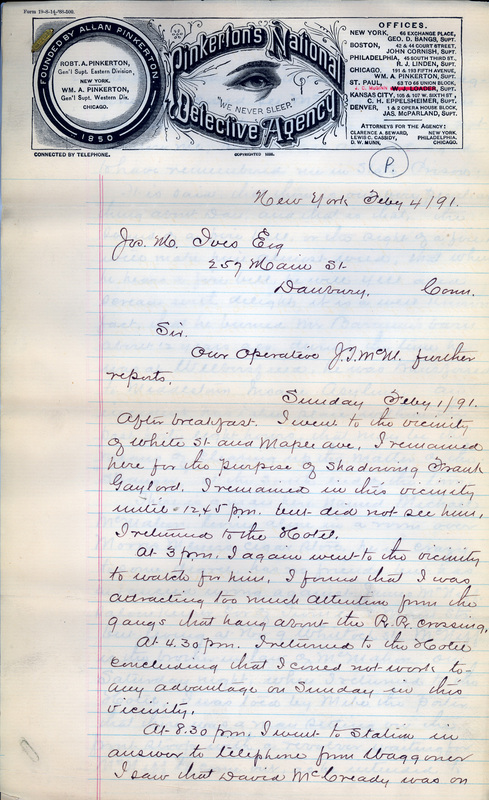 Form 19-8-14-'88-500.
FOUNDED BY ALLAN PINKERTON
1850
ROBT. A. PINKERTON,
Gen'l Supt. Eastern Division,
NEW YORK.
WM. A. PINKERTON,
Gen'l Supt. Western Div.
CHICAGO.
CONNECTED BY TELEPHONE.
Pinkerton's National
"WE NEVER SLEEP."
Detective Agency
COPYRIGHTED
OFFICES.
NEW YORK, 66 EXCHANGE PLACE,
GEO. D. BANGS, Supt.
BOSTON, 42 & 44 COURT STREET,
JOHN CORNISH, Supt.
PHILADELPHIA, 45 SOUTH THIRD ST.
R. J. LINDEN, Supt.
CHICAGO, 191 & 193 FIFTH AVENUE,
WM. A. PINKERTON, Supt.
ST. PAUL, 63 TO 66 UNION BLOCK,
LOADER, Supt.
KANSAS CITY, 105 & 107 W. SIXTH ST.
C. H. EPPELSHEIMER, Supt.
DENVER, 1 & 2 OPERA HOUSE BLOCK,
JAS. McPARLAND, Supt.
ATTORNEYS FOR THE AGENCY:
CLARENCE A. SEWARD, NEW YORK.
LEWIS C. CASSIDY, PHILADELPHIA.
D. W. MUNN, CHICAGO.
P.
New York Feby 4/91.
Jos. M. Ives Esq
257 Main St
Danbury. Conn.
Sir.
Our Operative J.T.McM. further
reports.
Sunday Feby 1/91.
After breakfast. I went to the vicinity
of White St and Maple ave, I remained
here for the purpose of shadowing Frank
Gaylord. I remained in this vicinity
until 12.45 pm. but did not see him,
I returned to the Hotel.
At 3 pm. I again went to the vicinity
to watch for him. I found that I was
attracting too much attention from the
gangs that hang about the R.R. crossing,
At 4.30 pm. I returned to the Hotel
concluding that I could not work to
any advantage on Sunday in this
vicinity.
At 8.30 pm. I went to Station in
answer to telephone from Waggoner
I saw that David McCready was on